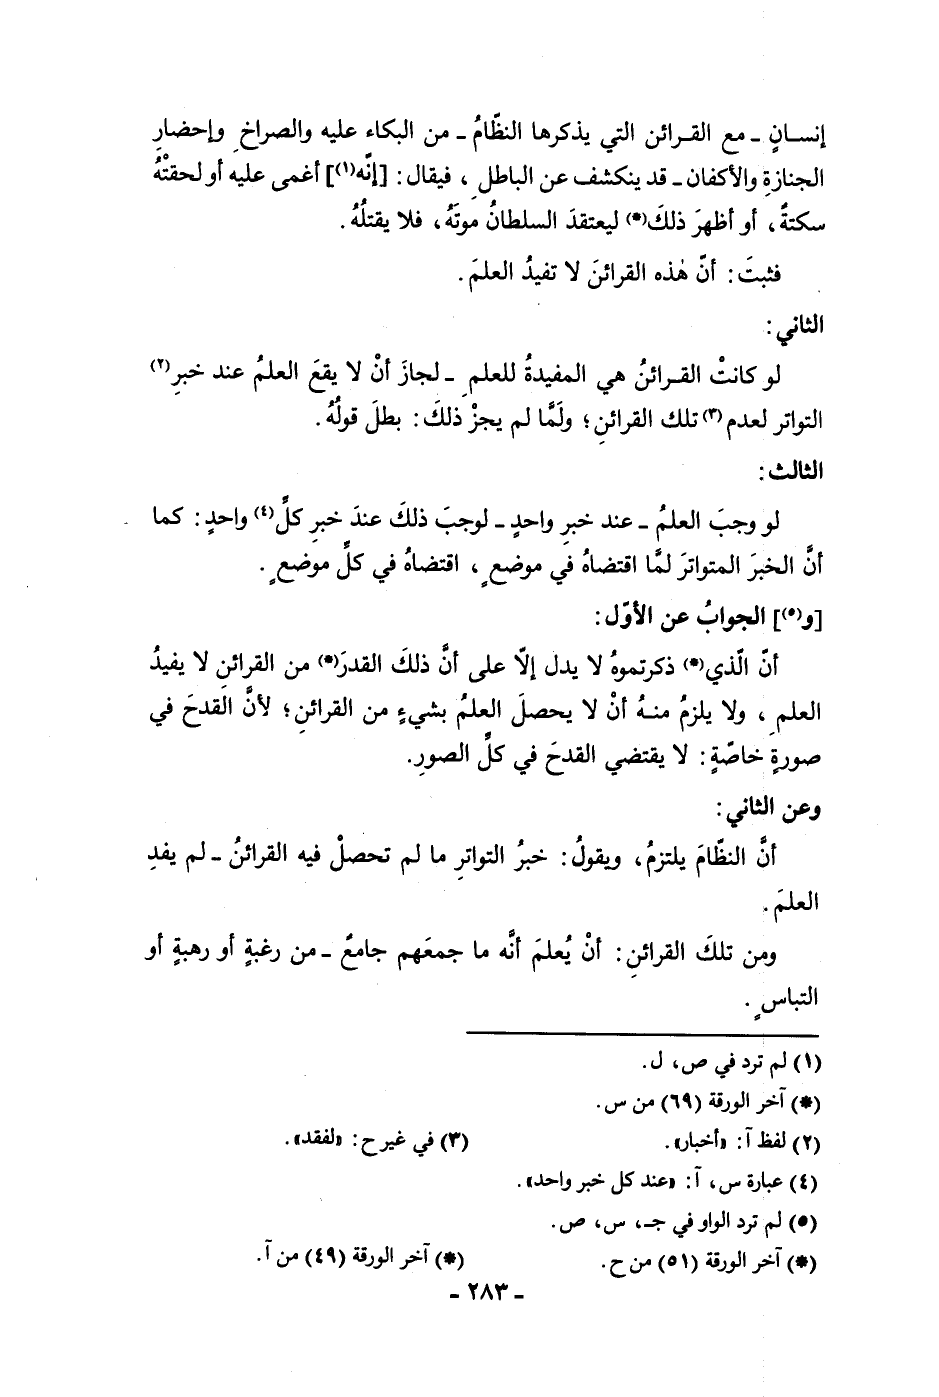 إنسـانٍ ـ مع القـرائن التي يذكرها النظّامُ ـ من البكاء عليه والصراخِ وإحضارِ
الجنازةِ والأكفان ـ قد ينكشف عن الباطلِ، فيقال: [إنّه(١)] أغمى عليه أو لحقتْهُ
سكتةٌ، أو أظهرَ ذلكَ(*) ليعتقدَ السلطانُ موتَهُ، فلا يقتلُهُ.
فثبتَ: أنّ هٰذه القرائنَ لا تفيدُ العلمَ.
الثاني:
لو كانتْ القـرائنُ هي المفيدةُ للعلمِ ـ لجازَ أنْ لا يقعَ العلمُ عند خبرِ(٢)
التواتر لعدم(٣) تلك القرائنِ؛ ولَمَّا لم يجزْ ذلكَ: بطلَ قولُهُ.
الثالث:
لو وجبَ العلمُ ـ عند خبرِ واحدٍ ـ لوجبَ ذلكَ عندَ خبرِ كلِّ(٤) واحدٍ: كما
أنَّ الخبرَ المتواترَ لمَّا اقتضاهُ في موضعٍ، اقتضاهُ في كلِّ موضعٍ.
[و(٥)] الجوابُ عن الأوّل:
أنّ الّذي(*) ذكرتموهُ لا يدل إلّا على أنَّ ذلكَ القدرَ(*) من القرائنِ لا يفيدُ
العلمِ، ولا يلزمُ منـهُ أنْ لا يحصلَ العلمُ بشيءٍ من القرائنِ؛ لأنَّ القدحَ في
صورةٍ خاصّةٍ: لا يقتضي القدحَ في كلِّ الصورِ.
وعن الثاني:
أنَّ النظّامَ يلتزمُ، ويقولُ: خبرُ التواترِ ما لم تحصلْ فيه القرائنُ ـ لم يفدِ
العلمَ.
ومن تلكَ القرائنِ: أنْ يُعلمَ أنَّه ما جمعَهم جامعٌ ـ من رغبةٍ أو رهبةٍ أو
التباسٍ.
(١) لم ترد في ص، ل.
(*) آخر الورقة (٦٩) من س.
(٢) لفظ آ: «أخبار». (٣) في غير ح: «لفقد».
(٤) عبارة س، آ: «عند كل خبر واحد».
(٥) لم ترد الواو في جـ، س، ص.
(*) آخر الورقة (٥١) من ح. (*) آخر الورقة (٤٩) من آ.
- ٢٨٣ -